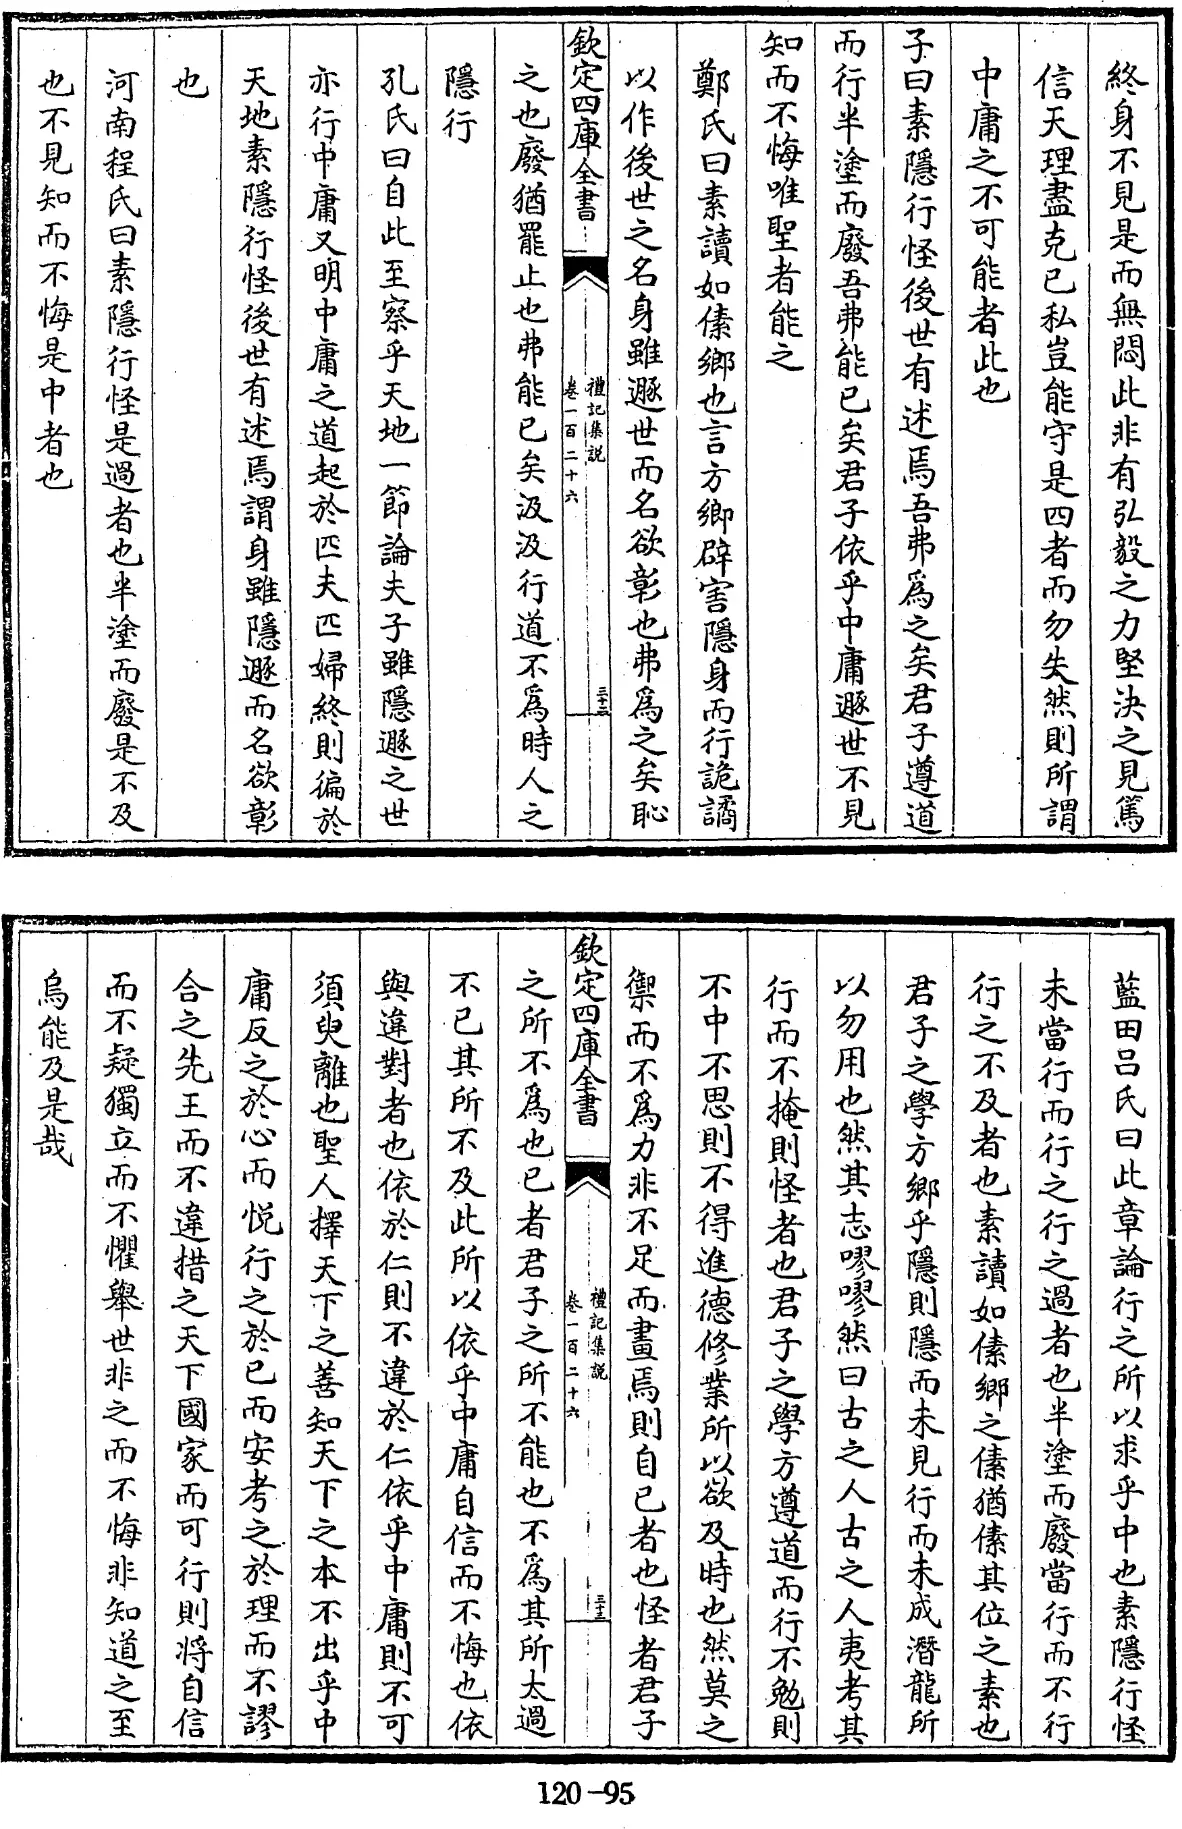 終身不見是而無悶此非有弘毅之力堅決之見篤
信天理盡克已私豈能守是四者而勿失然則所謂
中庸之不可能者此也
子曰素隱行怪後世有述焉吾弗為之矣君子遵道
而行半塗而廢吾弗能已矣君子依乎中庸遯世不見
知而不悔唯聖者能之
鄭氏曰素讀如傃鄉也言方鄉辟害隱身而行詭譎
以作後世之名身雖遯世而名欲彰也弗為之矣恥
欽定四庫全書
禮記集説
卷一百二十六
三十二
之也廢猶罷止也弗能已矣汲汲行道不為時人之
隱行
孔氏曰自此至察乎天地一節論夫子雖隱遯之世
亦行中庸又明中庸之道起於匹夫匹婦終則徧於
天地素隱行怪後世有述焉謂身雖隱遯而名欲彰
也
河南程氏曰素隱行怪是過者也半塗而廢是不及
也不見知而不悔是中者也
藍田吕氏曰此章論行之所以求乎中也素隱行怪
未當行而行之行之過者也半塗而廢當行而不行
行之不及者也素讀如傃鄉之傃猶傃其位之素也
君子之學方鄉乎隱則隱而未見行而未成潛龍所
以勿用也然其志嘐嘐然曰古之人古之人夷考其
行而不掩則怪者也君子之學方遵道而行不勉則
不中不思則不得進德修業所以欲及時也然莫之
禦而不為力非不足而畫焉則自已者也怪者君子
欽定四庫全書
禮記集説
卷一百二十六
三十三
之所不為也已者君子之所不能也不為其所太過
不已其所不及此所以依乎中庸自信而不悔也依
與違對者也依於仁則不違於仁依乎中庸則不可
須臾離也聖人擇天下之善知天下之本不出乎中
庸反之於心而悅行之於已而安考之於理而不謬
合之先王而不違措之天下國家而可行則將自信
而不疑獨立而不懼舉世非之而不悔非知道之至
烏能及是哉
120-95